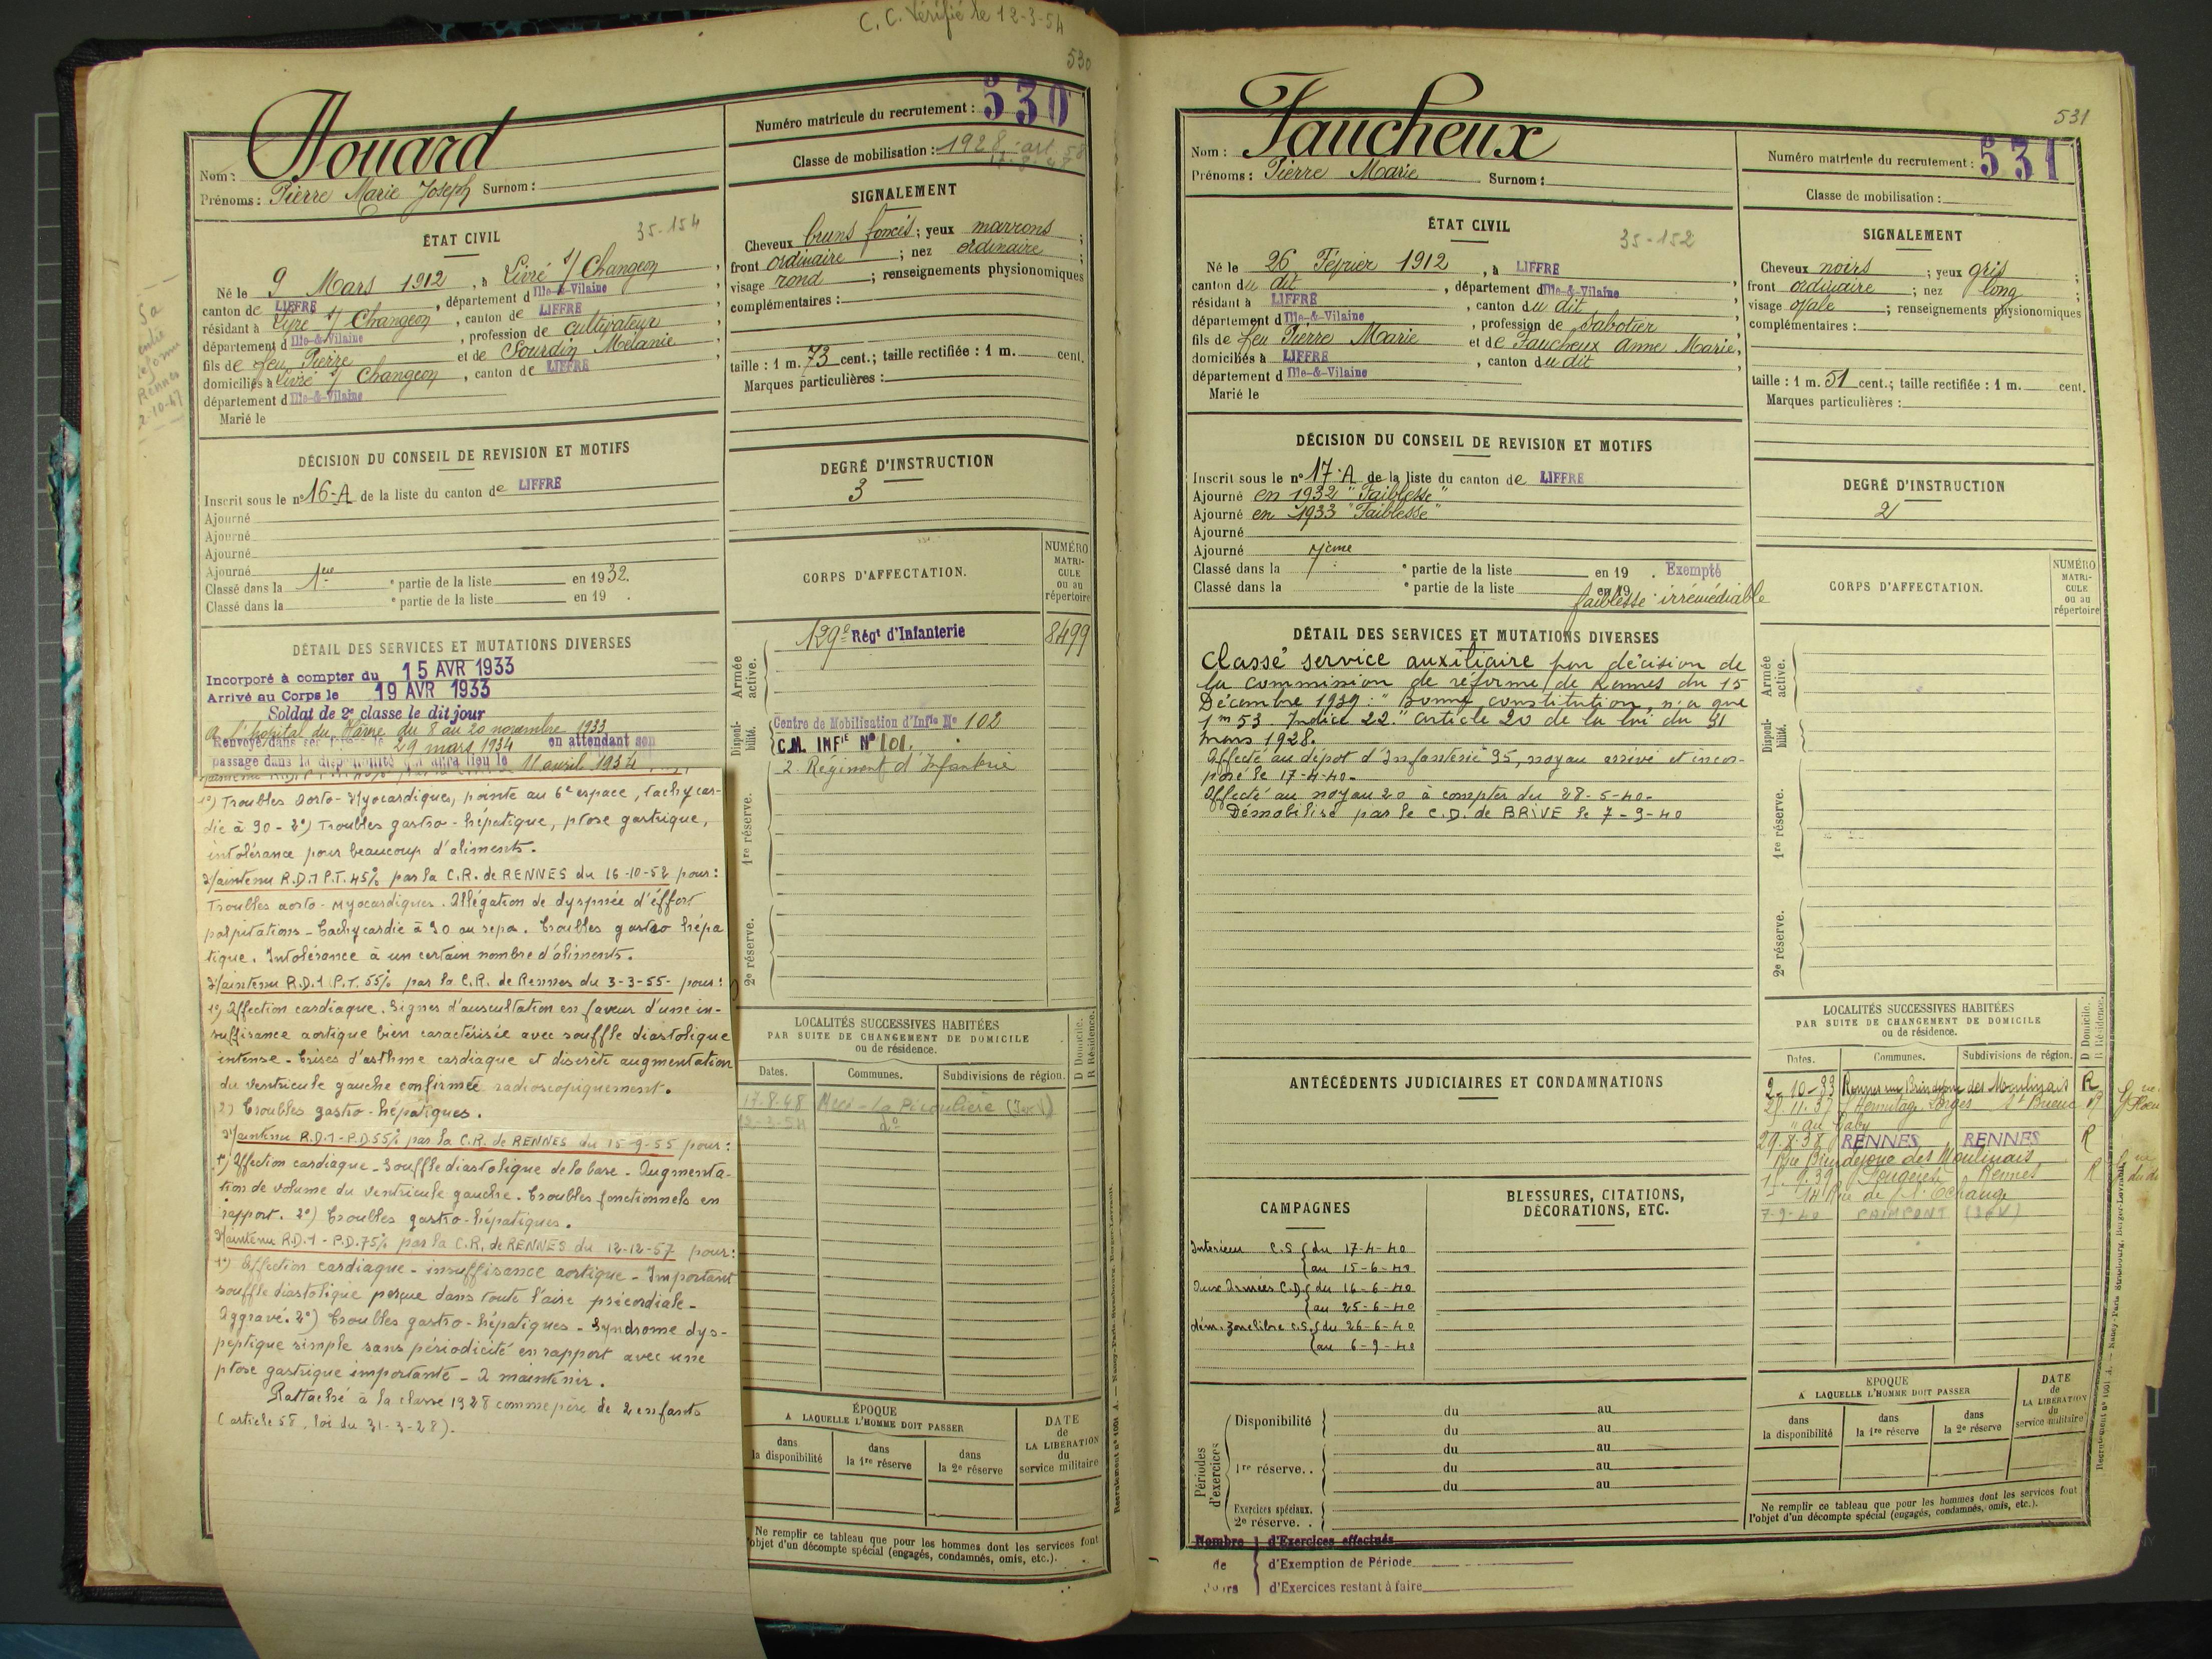 C. C. Vérifié le 12-3-54
530
Nom : Houard
Prénoms : Pierre Marie Joseph Surnom :
Numéro matricule du recrutement : 530
Classe de mobilisation : 1928 art. 58
ÉTAT CIVIL
35-154
Né le 9 Mars 1912, à Livré s/ Changeon,
canton de LIFFRÉ, département d Ille-&-Vilaine,
résidant à Livré s/ Changeon, canton de LIFFRÉ,
département d Ille-&-Vilaine, profession de cultivateur,
fils de feu Pierre et de Sourdin Mélanie,
domiciliés à Livré s/ Changeon, canton de LIFFRÉ,
département d Ille-&-Vilaine
Marié le
SIGNALEMENT
Cheveux bruns foncés ; yeux marrons ;
front ordinaire ; nez ordinaire ;
visage rond ; renseignements physionomiques
complémentaires :
taille : 1 m. 73 cent.; taille rectifiée : 1 m. cent.
Marques particulières :
réformé
Rennes
2-10-47
DÉCISION DU CONSEIL DE REVISION ET MOTIFS
Inscrit sous le n° 16-A de la liste du canton de LIFFRÉ
Ajourné
Ajourné
Ajourné
Ajourné
Classé dans la 1ere e partie de la liste en 1932.
Classé dans la e partie de la liste en 19 .
DEGRÉ D'INSTRUCTION
3
DÉTAIL DES SERVICES ET MUTATIONS DIVERSES
Incorporé à compter du 15 AVR 1933
Arrivé au Corps le 19 AVR 1933
Soldat de 2e classe le dit jour
A l'hôpital du Hâvre du 8 au 20 novembre 1933
Renvoyé dans ses foyers le 29 mars 1934 en attendant son
passage dans la disponibilité qui aura lieu le 11 avril 1934
1°) Troubles Aorto-Myocardiques, pointe au 6e espace, tachycar-
die à 90 - 2°) Troubles gastro-hépatique, ptose gastrique,
intolérance pour beaucoup d'aliments.
Maintenu R.D.1 P.T. 45% par la C.R. de RENNES du 16-10-52 pour :
Troubles aorto-myocardiques. Allégation de dyspnée d'éffort
palpitations - Tachycardie à 90 au repos. Troubles gastro hépa
tique. Intolérance à un certain nombre d'aliments.
Maintenu R.D.1 P.T. 55% par la C.R. de Rennes du 3-3-55- pour :
1°) Affection cardiaque. Signes d'auscultation en faveur d'une in-
suffisance aortique bien caractérisée avec souffle diastolique
intense - Crises d'asthme cardiaque et discrète augmentation
du ventricule gauche confirmée radioscopiquement.
2) Troubles gastro-hépatiques.
Maintenu R.D.1 - P.D. 55% par la C.R. de RENNES du 15-9-55 pour :
1°) Affection cardiaque - Souffle diastolique de la base - Augmenta-
tion de volume du ventricule gauche. Troubles fonctionnels en
rapport. 2°) Troubles gastro-hépatiques.
Maintenu R.D.1 - P.D. 75% par la C.R. de RENNES du 12-12-57 pour :
1°) Affection cardiaque - insuffisance aortique - Important
souffle diastolique perçue dans toute l'aire précordiale -
Aggravé. 2°) Troubles gastro-hépatiques - Syndrome dys-
peptique simple sans périodicité en rapport avec une
ptose gastrique importante - A maintenir.
Rattaché à la classe 1928 comme père de 2 enfants
(article 58, loi du 31-3-28).
CORPS D'AFFECTATION.
NUMÉRO MATRI-CULE ou au répertoire
Armée active.
129e Régt d'Infanterie 8499
Disponi-bilité.
Centre de Mobilisation d'Infie No 102
C.M. INFIE N° 101.
2. Régiment d'Infanterie
1re réserve.
2e réserve.
LOCALITÉS SUCCESSIVES HABITÉES
PAR SUITE DE CHANGEMENT DE DOMICILE
ou de résidence.
D Domicile.
R Résidence.
Dates. Communes. Subdivisions de région.
17-8-48
12-3-54 do
ÉPOQUE
A LAQUELLE L'HOMME DOIT PASSER
dans la disponibilité
dans la 1re réserve
dans la 2e réserve
DATE de LA LIBÉRATION du service militaire
Ne remplir ce tableau que pour les hommes dont les services font
l'objet d'un décompte spécial (engagés, condamnés, omis, etc.).
531
Nom : Faucheux
Prénoms : Pierre Marie Surnom :
Numéro matricule du recrutement : 531
Classe de mobilisation :
ÉTAT CIVIL
35-152
Né le 26 Février 1912, à LIFFRÉ
canton du dit, département d Ille-&-Vilaine,
résidant à LIFFRÉ, canton du dit,
département d Ille-&-Vilaine, profession de Sabotier,
fils de feu Pierre Marie et de Faucheux Anne Marie,
domiciliés à LIFFRÉ, canton du dit,
département d Ille-&-Vilaine
Marié le
SIGNALEMENT
Cheveux noirs ; yeux gris ;
front ordinaire ; nez long ;
visage ovale ; renseignements physionomiques
complémentaires :
taille : 1 m. 51 cent.; taille rectifiée : 1 m. cent.
Marques particulières :
DÉCISION DU CONSEIL DE REVISION ET MOTIFS
Inscrit sous le n° 17-A de la liste du canton de LIFFRÉ
Ajourné en 1932 "Faiblesse"
Ajourné en 1933 "Faiblesse"
Ajourné
Ajourné
Classé dans la 7ème e partie de la liste en 19 . Exempté
Classé dans la e partie de la liste en 19
faiblesse irrémédiable
DEGRÉ D'INSTRUCTION
2
DÉTAIL DES SERVICES ET MUTATIONS DIVERSES
Classé service auxiliaire par décision de
la commission de réforme de Rennes du 15
Décembre 1939 : "Bonne constitution, n'a que
1m53. Indice 22." article 20 de la loi du 31
mars 1928.
Affecté au dépôt d'Infanterie 35, noyau arrivé et incor-
poré le 17-4-40-
Affecté au noyau 20 à compter du 28-5-40-
Démobilisé par le C.D. de BRIVE le 7-9-40
CORPS D'AFFECTATION.
NUMÉRO MATRI-CULE ou au répertoire
Armée active.
Disponi-bilité.
1re réserve.
2e réserve.
ANTÉCÉDENTS JUDICIAIRES ET CONDAMNATIONS
LOCALITÉS SUCCESSIVES HABITÉES
PAR SUITE DE CHANGEMENT DE DOMICILE
ou de résidence.
D Domicile.
R Résidence.
Dates. Communes. Subdivisions de région.
2-10-33 Rennes rue Brindejonc des Moulinais R
11.37 Hermitage Lorges St Brieuc R
29.8.38 RENNES RENNES R
Rue Brindejonc des Moulinais
9.39 Fougères Rennes R
14 Rue de l'Echange
7-9-40 PAIMPONT (I&V)
CAMPAGNES
Intérieur C.S. du 17-4-40
au 15-6-40
Aux Armées C.D. du 16-6-40
au 25-6-40
dém. zone libre C.S. du 26-6-40
au 6-9-40
BLESSURES, CITATIONS,
DÉCORATIONS, ETC.
Périodes d'exercices
Disponibilité du au
du au
1re réserve.. du au
du au
du au
Exercices spéciaux.
2e réserve. .
Nombre d'Exercices effectués
de d'Exemption de Période
Jours d'Exercices restant à faire
ÉPOQUE
A LAQUELLE L'HOMME DOIT PASSER
dans la disponibilité
dans la 1re réserve
dans la 2e réserve
DATE de LA LIBÉRATION du service militaire
Ne remplir ce tableau que pour les hommes dont les services font
l'objet d'un décompte spécial (engagés, condamnés, omis, etc.).